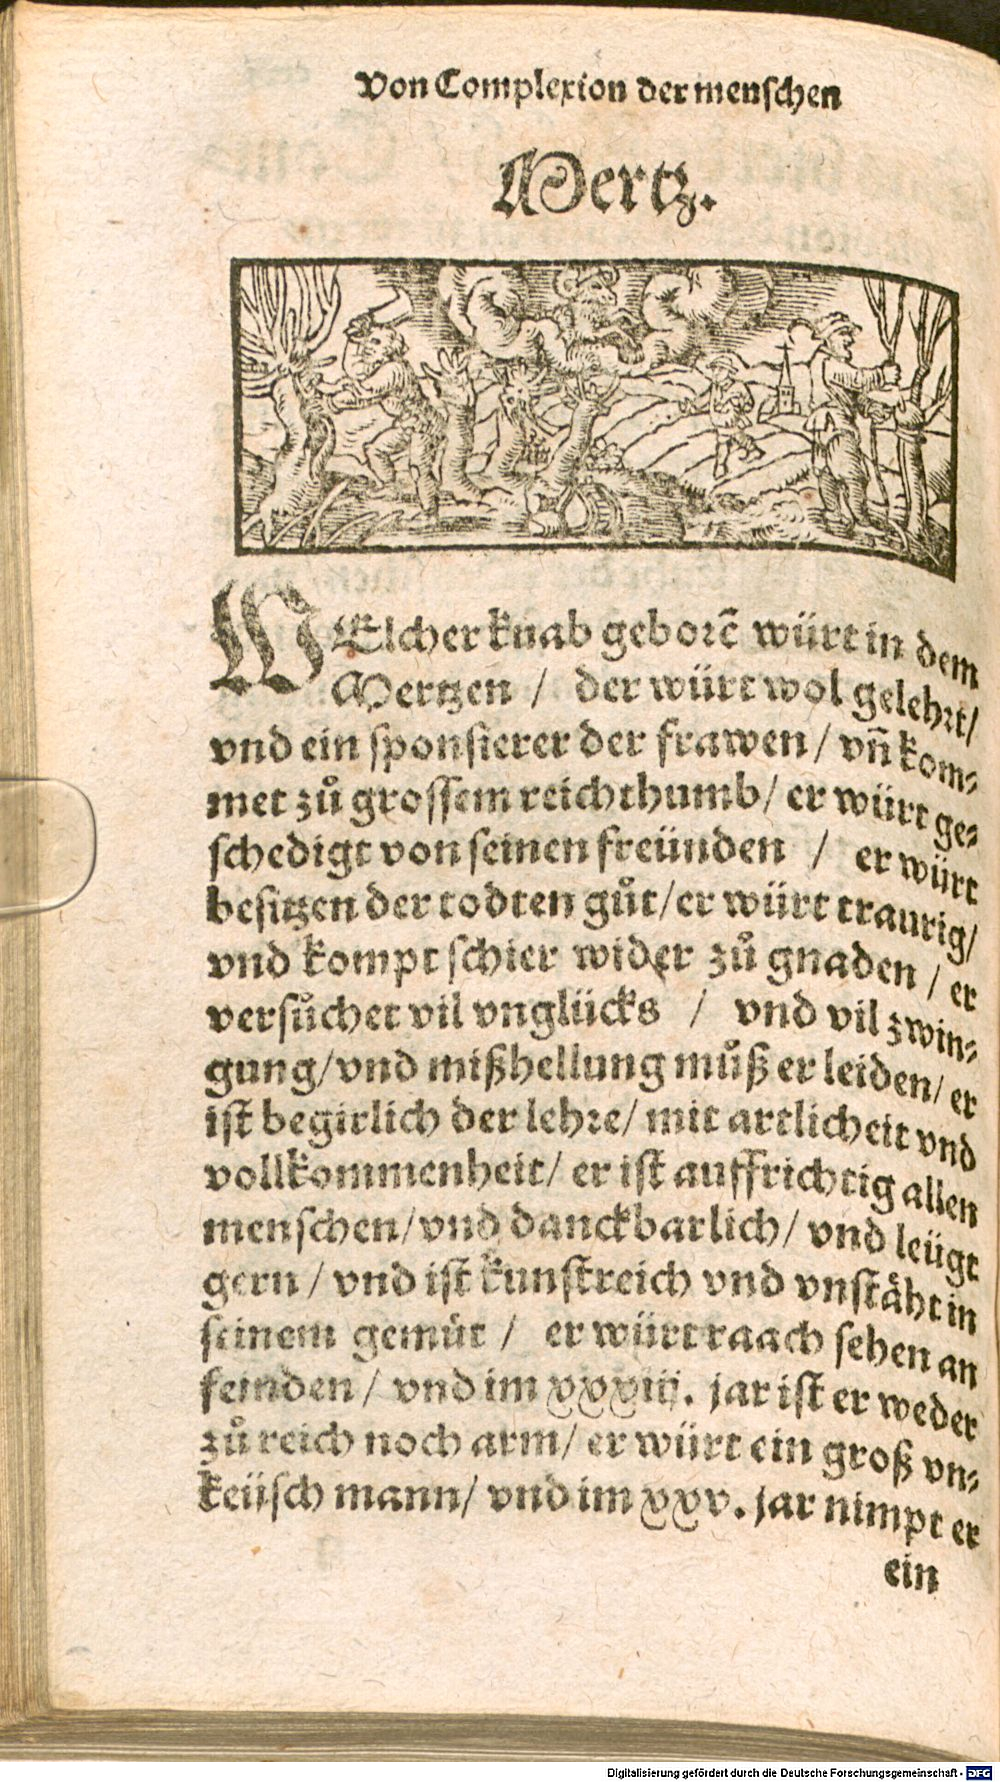 Von Complexion der menschen
Mertz.
WElcher knab geborẽ würt in dem
Mertzen / der würt wol gelehrt/
vnd ein sponsierer der frawen / vñ kom⸗
met zů grossem reichthumb/ er würt ge⸗
schedigt von seinen freünden / er würt
besitzen der todten gůt/er würt traurig/
vnd kompt schier wider zů gnaden / er
versůchet vil vnglücks / vnd vil zwin⸗
gung/vnd mißhellung můß er leiden/ er
ist begirlich der lehre/ mit artlicheit vnd
vollkommenheit/ er ist auffrichtig allen
menschen/vnd danckbarlich/ vnd leügt
gern / vnd ist kunstreich vnd vnstäht in
seinem gemüt / er würt raach sehen an
feinden / vnd im xxxiij. jar ist er weder
zů reich noch arm/ er würt ein groß vn⸗
keüsch mann/ vnd im xxv. jar nimpt er
ein
Digitalisierung gefördert durch die Deutsche Forschungsgemeinschaft - DFG